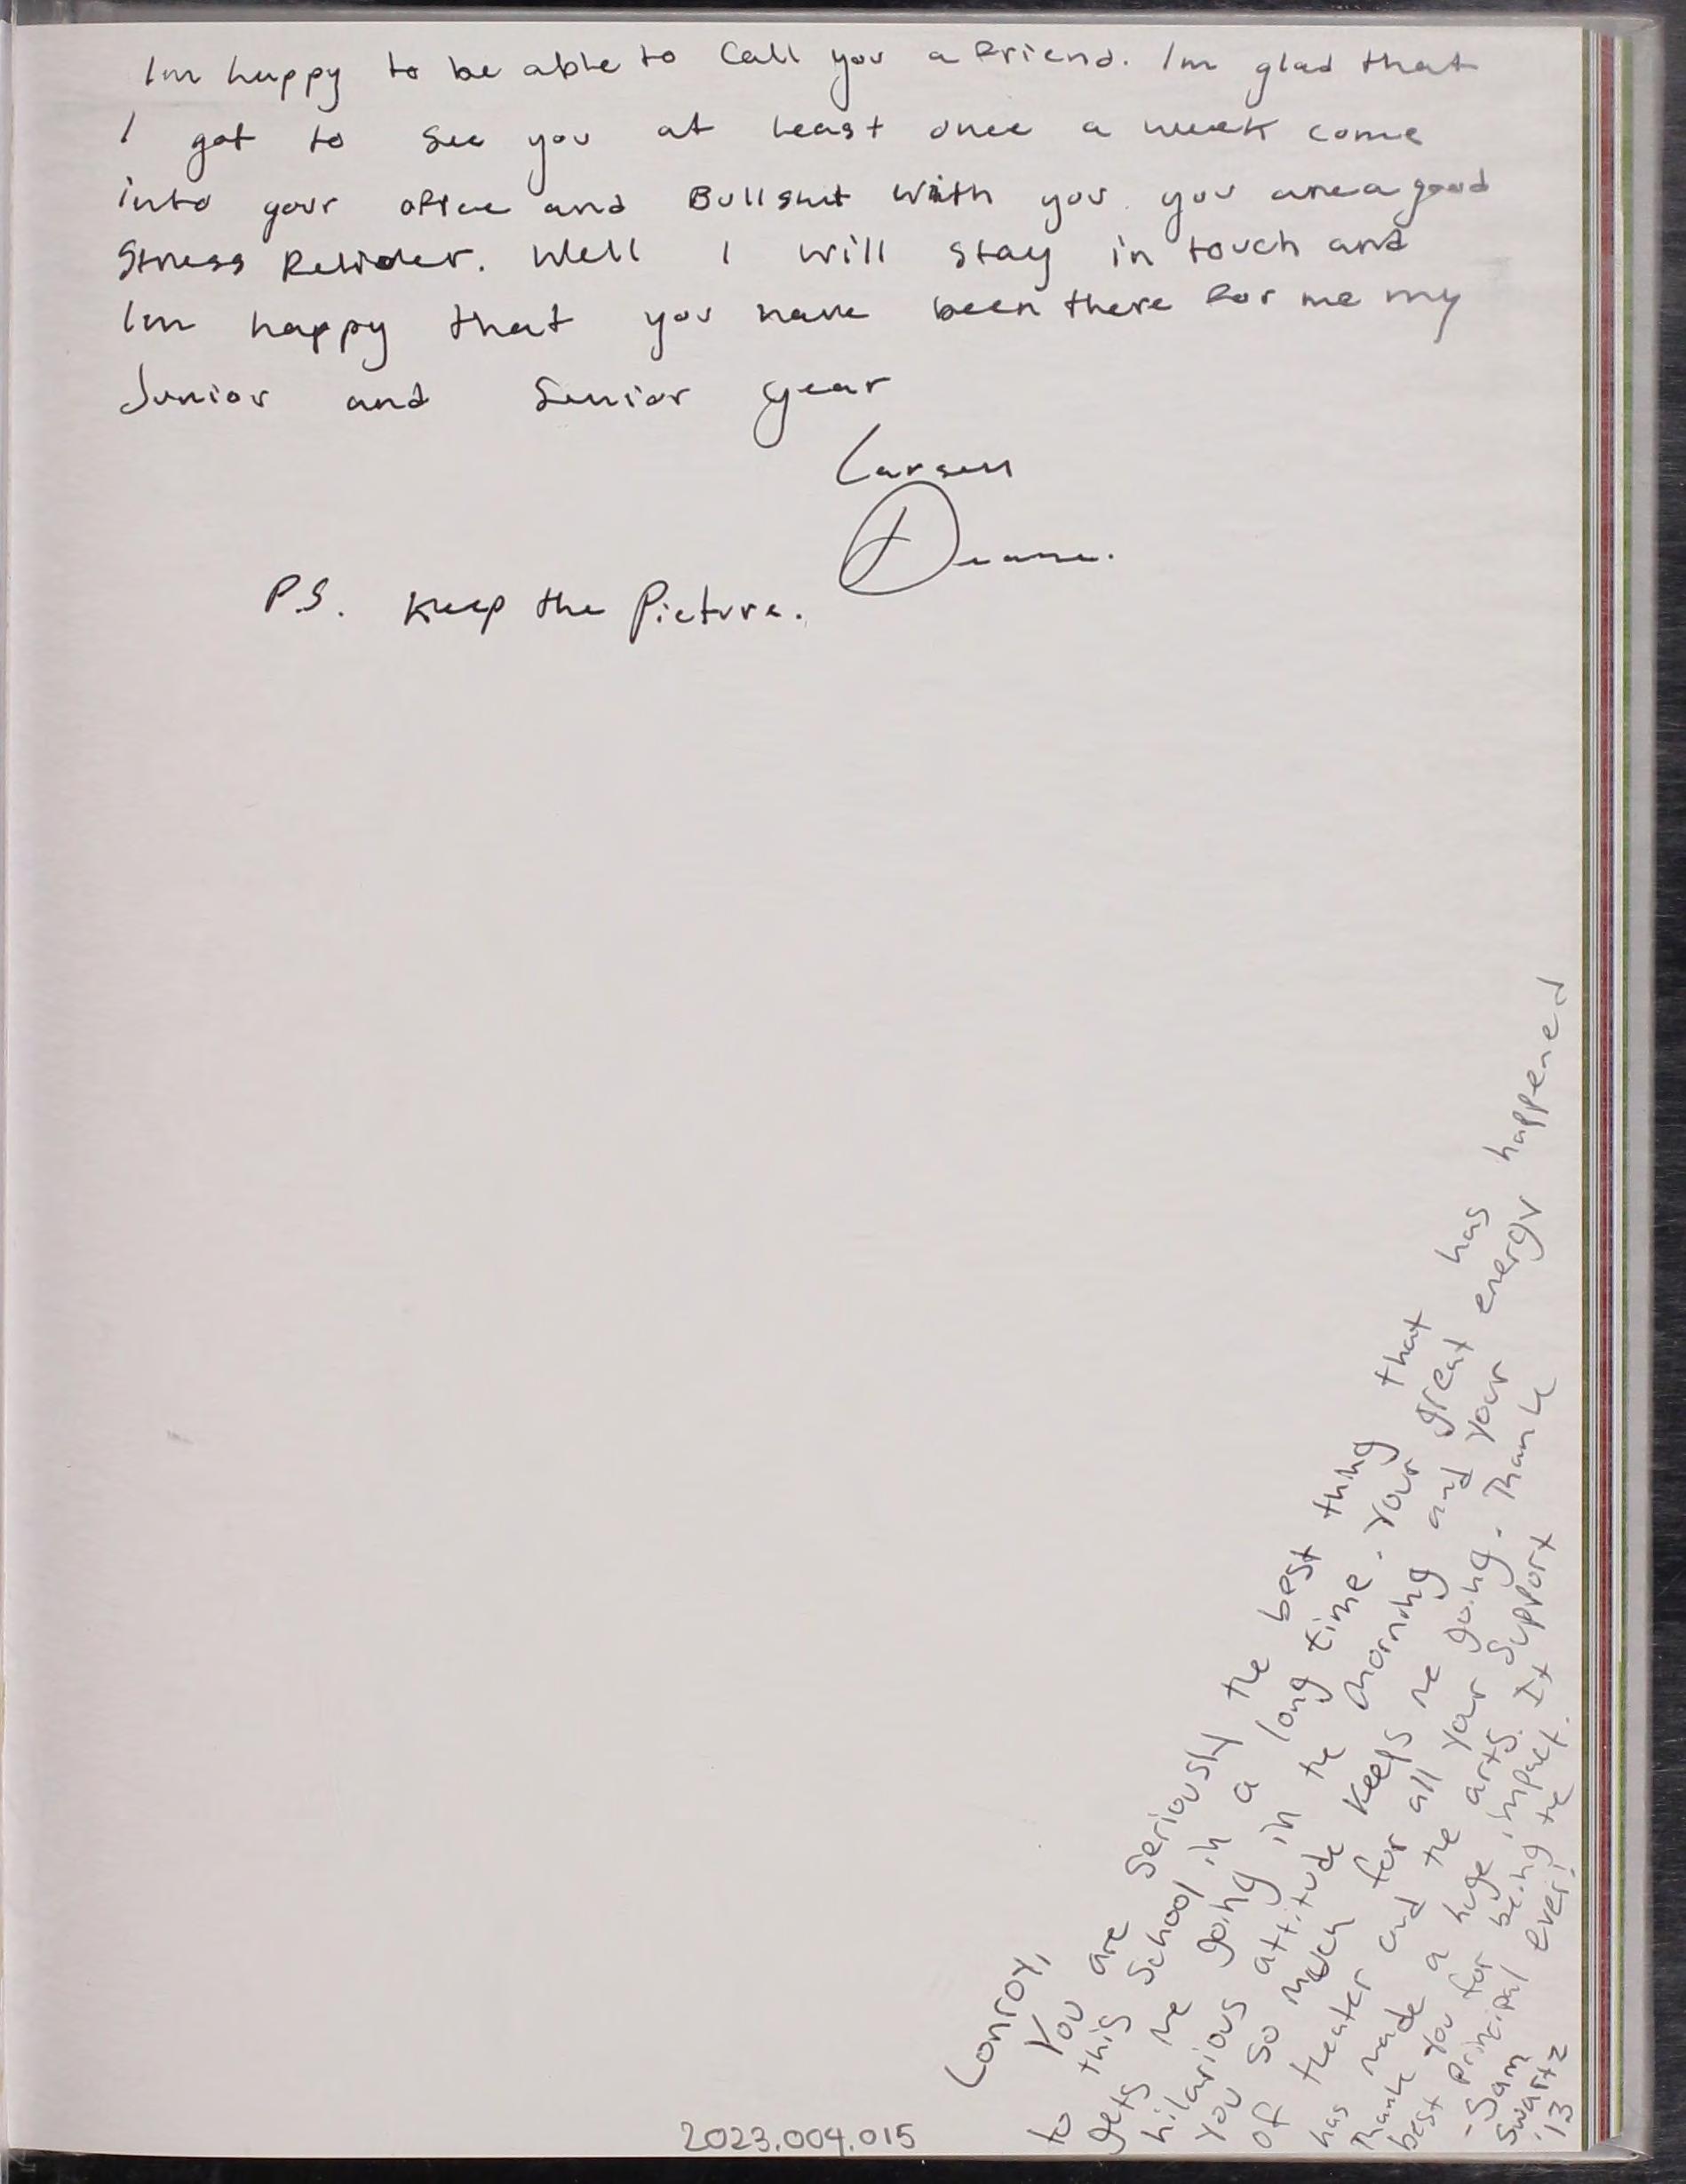 Im happy to be able to Call you a friend. Im glad that
I got to see you at least once a week come
into your office and Bullshit with you. you are a good
Stress Relider. Well I will stay in touch and
Im happy that you have been there for me my
Junior and Senior year
Larsen
Deane.
P.S. Keep the Picture.
Conroy,
You are seriously the best thing that has happened
to this school in a long time. Your great energy
gets me going in the morning and your
hilarious attitude keeps me going. Thank
you so much for all your support
of theater and the arts. It
has made a huge impact.
Thank you for being the
best principal ever!
-Sam
Swartz
'13
2023.004.015